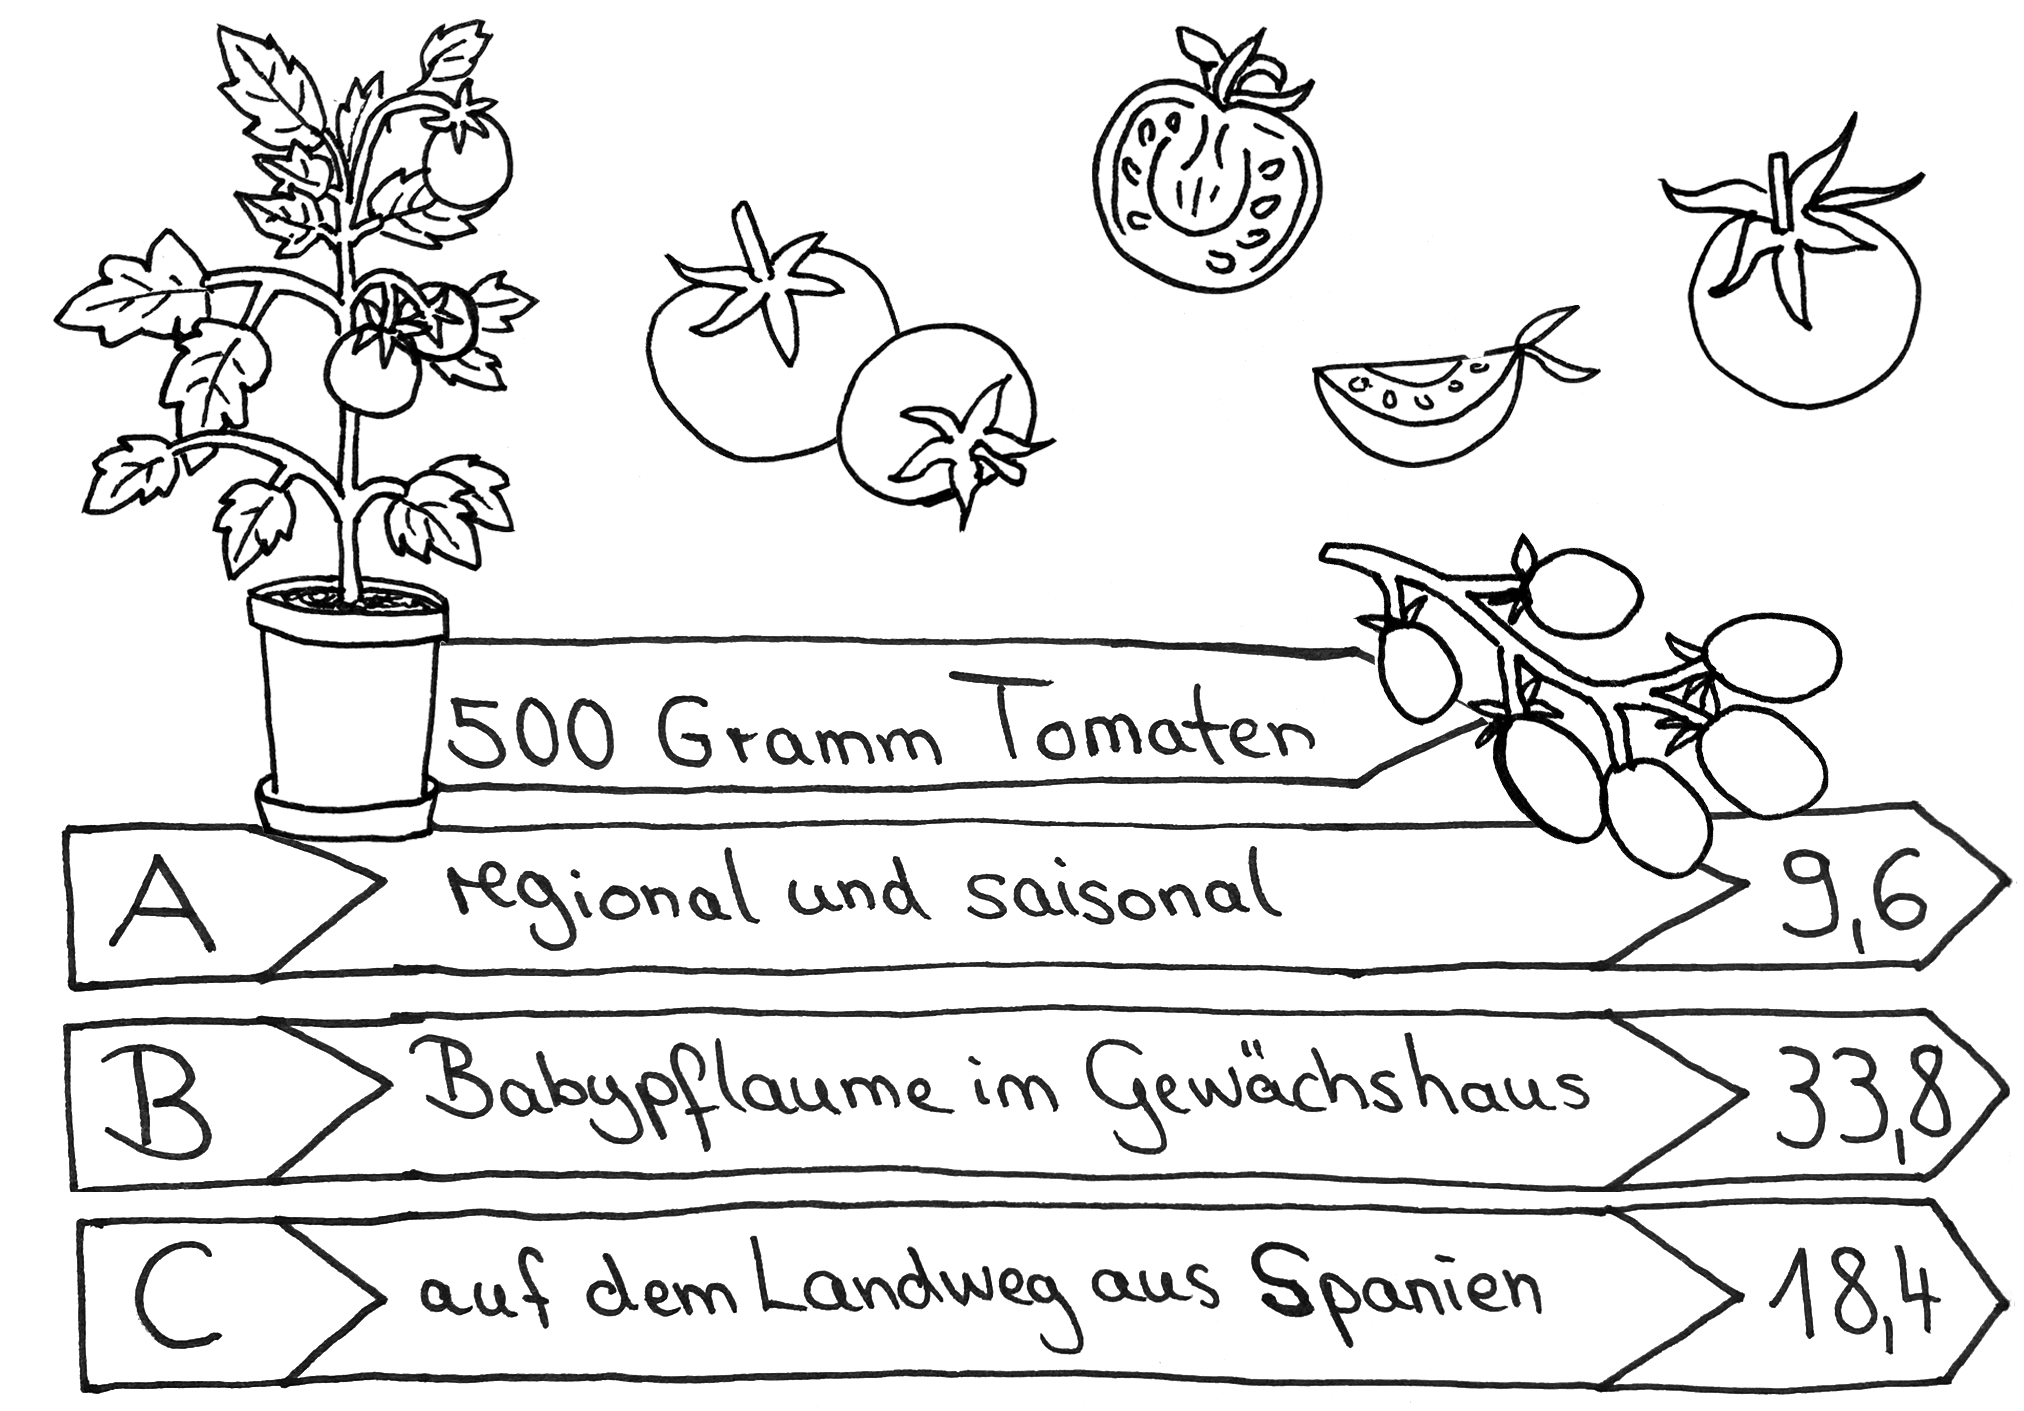 500 Gramm Tomaten
A regional und saisonal 9,6
B Babypflaume im Gewächshaus 33,8
C auf dem Landweg aus Spanien 18,4